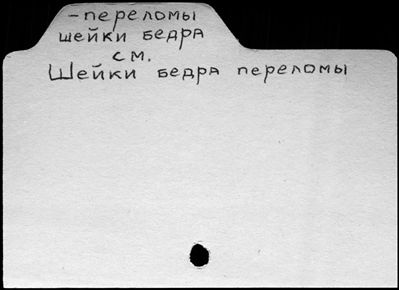 -переломы
шейки бедра
см.
Шейки бедра переломы